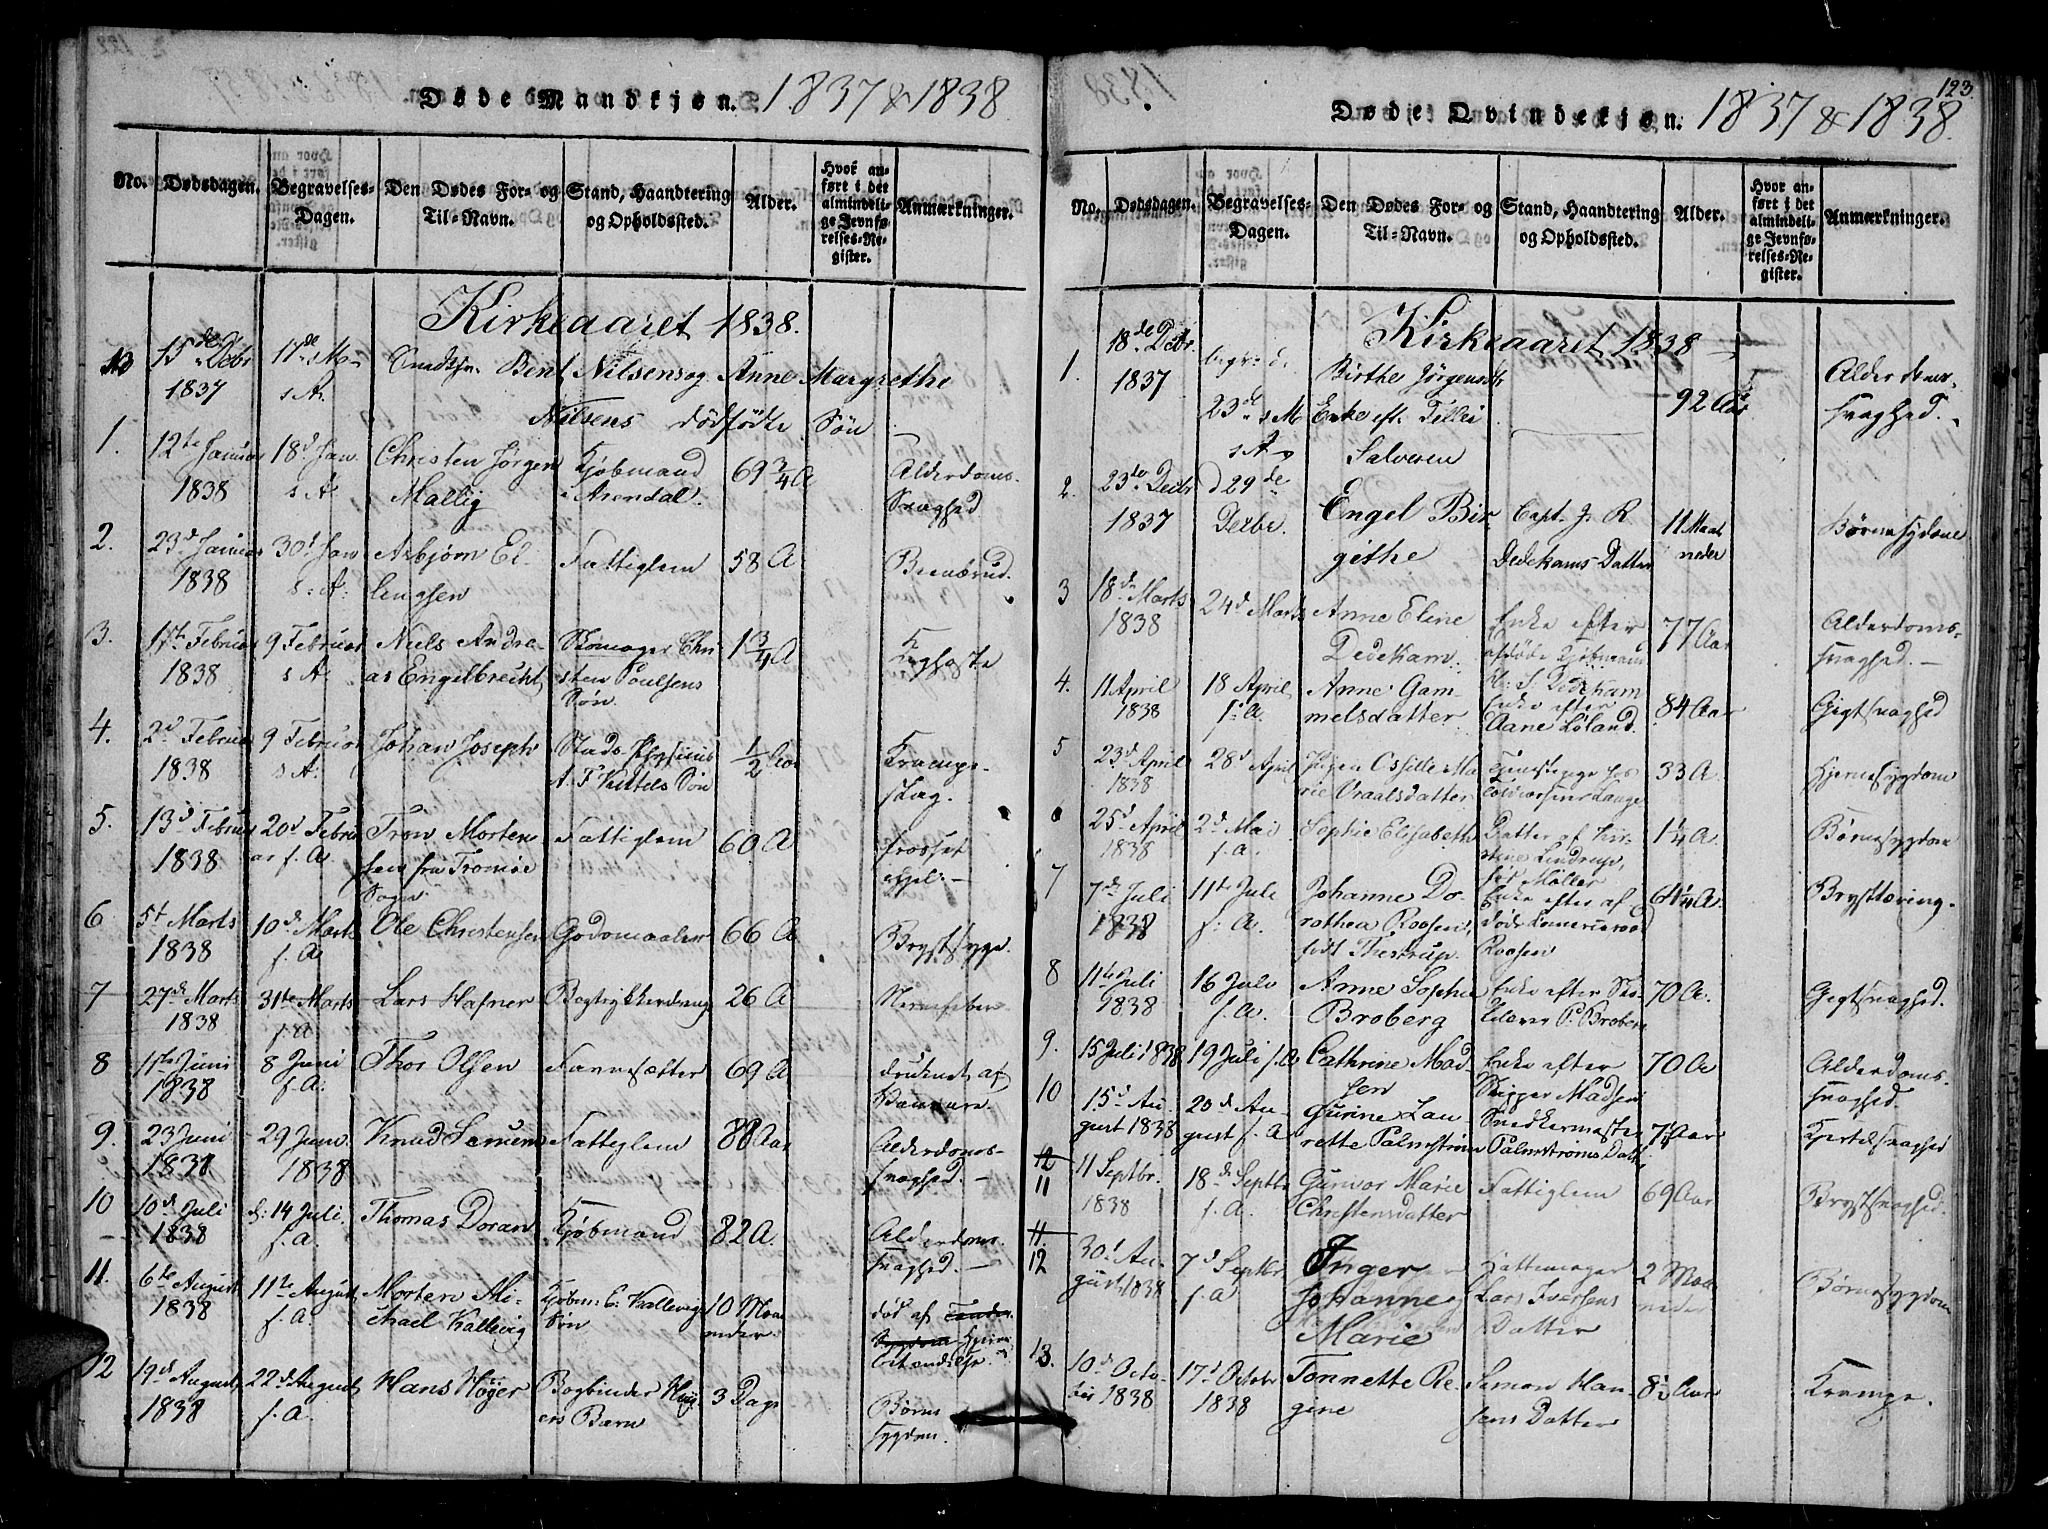 Døde Mandkjøn. 1837 & 1838
No. Dødsdagen. Begravelses-Dagen. Den Dødes For- og Til-Navn. Stand, Haandtering og Opholdssted. Alder. Hvor anført i det almindelige Jevnførelses-Register. Anmærkninger.
Kirkeaaret 1838.
15de Debr 1837 s.A. Bent Nilsens og Anne Margrethe
Nilsens dödfödte Søn
1. 12te Januar 1838 18d Jan. s A. Christen Jörgen Mallig Kjöbmand i Arendal. 69 3/4 A Alderdoms-Svaghed
2. 23d Januar 1838 30d Jan s: A: Asbjörn Fattiglem 58 A Beenbrud.
3. 1te Februar 1838 9 Februar s A. Niels Andreas Engelbrecht Skomager Christen Poulsens Sön 1 3/4 A Kighoste
4. 2d Februar 1838 9 Februar s A. Johan Joseph Sön 1/2 Aar Krampeslag.
5. 13d Februar 1838 20d Februar s. A. Tron Mortensen fra Tromöe Sogn Fattiglem 60 A frosset
6 5t Marts 1838 10d Marts s. A. Ole Christensen 66 A Brystsyge.
7 27d Marts 1838 31te Marts s. A Lars Hafner Bogtrykkerdreng 26 A Nervefeber
8 11te Juni 1838 8 Juni s. A. Thor Olsen 69 A druknet af
9. 23 Juni 1838 29 Juni 1838 Knud Fattiglem 88 Aar Alderdoms-svaghed. —
10 10d Juli 1838 14 Juli s. A. Thomas Doran Kjöbmand 82 A. Alderdoms-svaghed. —
11. 6te August 1838 11te August s. A. Morten Michael Kallevig Kjöbm: C. Kallevigs Sön 10 Maaneder död af
12 19d August 1838 22d August s. A. Hans Höyer Bogbinder Höyers Barn 3 Dage Børnesygdom.
123
Døde Qvindekjøn. 1837 & 1838.
No. Dødsdagen. Begravelses-Dagen. Den Dødes For- og Til-Navn. Stand, Haandtering og Opholdssted. Alder. Hvor anført i det almindelige Jevnførelses-Register. Anmærkninger.
Kirkeaaret 1838
1. 18de Debr. 1837 23de s M s A Birthe Jörgensdtr Enke eft. Tellev Salvesen 92 Aar Alderdomssvaghed.
2. 23de Decbr 1837 d 29de Decbr. Engel Birgithe Capt. J. R Dedekams Datter 11 Maaneder Börnesygdom
3 18de Marts 1838 24d Marts Anne Eline Dedekam. Enke efter afdöde Kjöbmand Dedekam 77 Aar Alderdoms-svaghed. —
4. 11 April 1838 18 April s. A. Anne Gammelsdatter Enke efter Aane Löland. 84 Aar Gigtsvaghed
5 23d April 1838 28d April Marie Vraalsdatter Tjenstepige hos Lange 33 A Hjernesygdom
6 25d April 1838 2d Mai s. A. Sophie Elisabeth Datter af Lindrup, föd Möller 1 1/4 A Börnesygdom
7 7de Juli 1838 11te Juli s. A. Johanne Dorothea Roosen, föd Thestrup. Enke efter afdöde Roosen 61 1/4 A. Brysttæring.
8 11te Juli 1838 16 Juli s. A. Anne Sophie Broberg Enke efter P. Broberg 70 A. Gigtsvaghed.
9. 15 Juli 1838 19 Juli s. A Cathrine Madsen Enke efter Skipper Madsen 70 A Alderdoms-svaghed.
10 15d August 1838 20d August s. A Gurine Laurette Palmström Snedkermester Palmströms Datter Kjertelsvaghed
12
11 11 Septbr. 1838 18de Septbr s. A. Gunvor Marie Christensdatter Fattiglem 69 Aar Brystsvaghed.
11.
12 30d August 1838 7d Septbr s. A Inger Johanne Marie Hattemager Lars Iversens Datter 2 Maaneder Börnesygdom
13. 10d October 1838 17d Octobr 1838 Tonnette Regine Simon Hansens Datter 8 1/2 Aar Krampe.